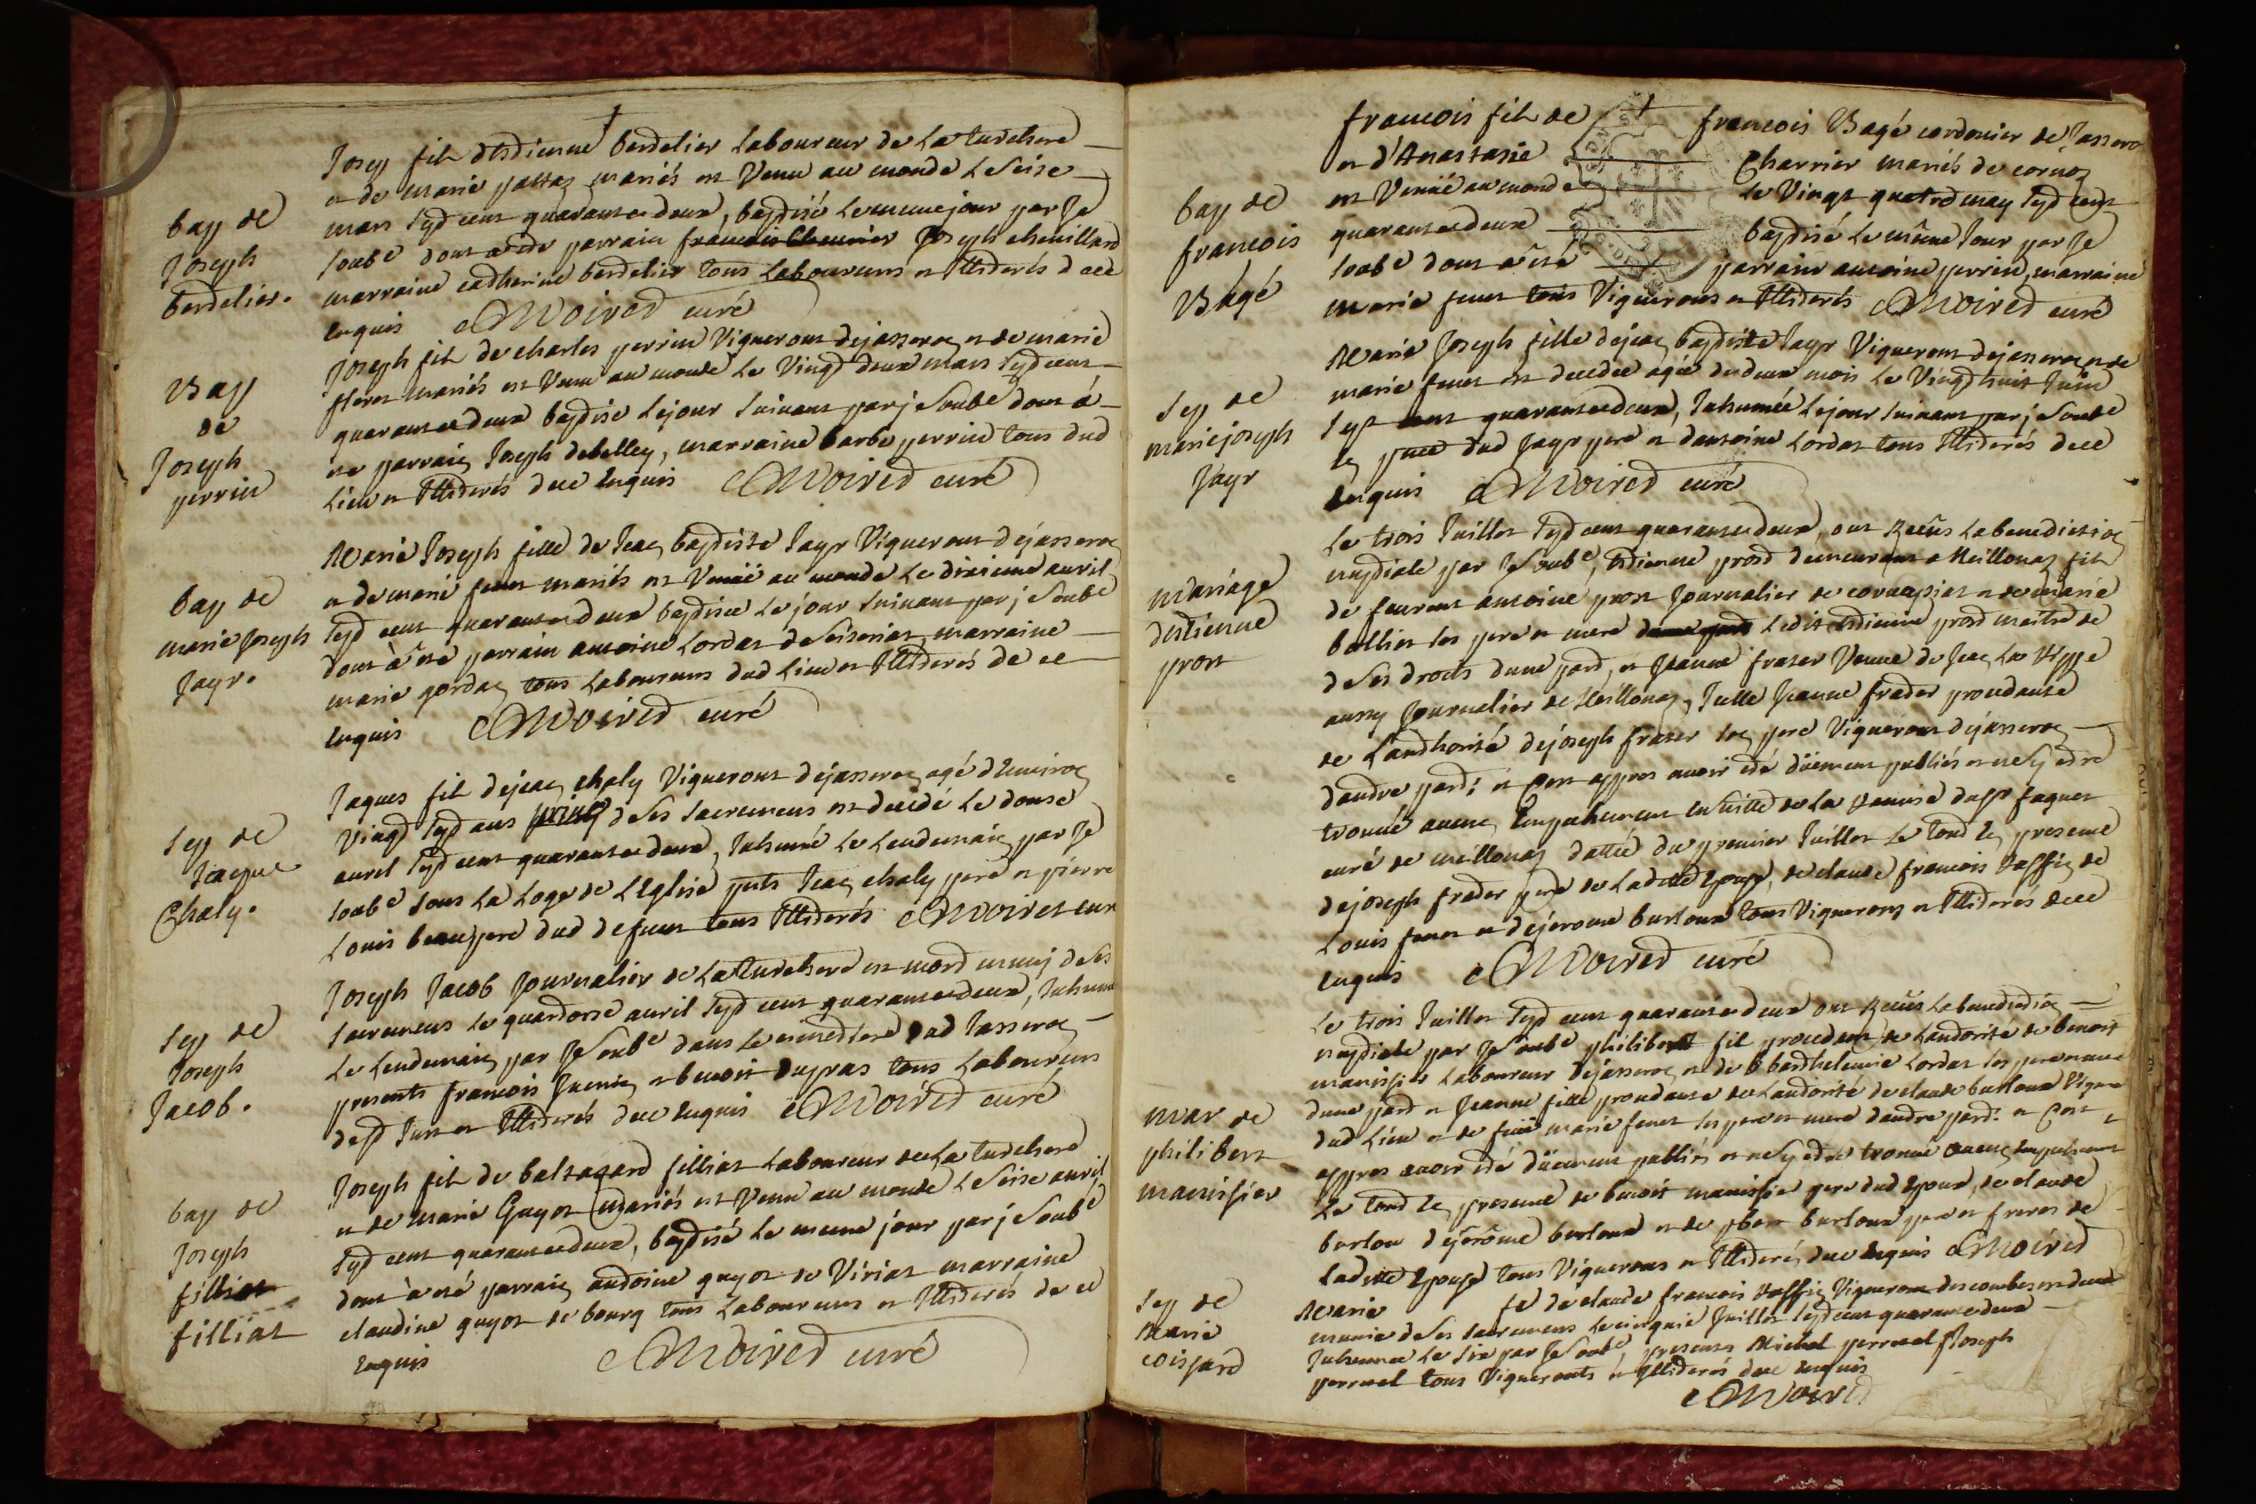 bap de
Joseph
berdelier.
Josep fils d'Estienne berdelier Laboureur de La Turchere
et de marie pattaz mariés est Venu au monde Le Seise
mars sept cent quarante deux, baptisé Le meme jour par Je
soubs.e dont a été parrain Joseph chevillard
marraine catherine berdelier tous Laboureurs et Illiterés de ce
enquis Moiret curé
Bap
de
Joseph
perrin
Joseph fils de charles perrin Vigneront de jasseron et de marie
mariés est Venu au monde Le Vingt deux mars sept cent
quarante deux baptisé Le jour suivant par je Soub.é dont a
été parrain Joseph debelley, marraine barbe perrin tous dud
Lieu et Illiterés de ce enquis Moiret curé
bap de
marie Joseph
Jayr.
Marie Joseph fille de Jean baptiste Jayr Vigneront de jasseron
et de marie feuet mariés est Venüe au monde Le dixieme avril
sept cent quarante deux baptisée Le jour suivant par je Soub.é
dont a été parrain antoine Lordat de Seiseriat marraine
marie gordan tous Laboureurs dud Lieu et Illiterés de ce
enquis Moiret curé
Sep de
Jacque
Chaly.
Jaques fils de jean chaly Vigneront de jasseron agé d'Environ
Vingt sept ans de Ses Sacremens est decédé Le douse
avril sept cent quarante deux, Inhumé Le Lendemain par Je
soub.é sous La Loge de L'Eglise pnts Jean chaly pere et pierre
Louis beaupere dud defunt tous Illiterés Moiret curé
Sep de
Joseph
Jacob.
Joseph Jacob Journalier de La Turchere est mort muni de Ses
Sacremens Le quatorse avril sept cent quarante deux, Inhumé
Le Lendemain par Je Soub.é dans Le cimetiere dud Jasseron
presents francois et benoit dupras tous Laboureurs
et Illiterés de ce enquis Moiret curé
bap de
Joseph
filliat
filliat
Joseph fils de baltazard filliat Laboureur de La Turchere
et de marie Guyot mariés est Venu au monde Le Seise avril
sept cent quarante deux, baptisé Le meme jour par je Soub.é
dont a été parrain antoine guyot de Viriat marraine
claudine guyot de bourg tous Laboureurs et Illiterés de ce
enquis Moiret curé
bap de
francois
Bagé
francois fils de francois Bagé cordonier de Jasseron
et d'Anastasie Charrier mariés de cornoz
est Venüe au monde Le Vingt quatre may sept cent
quarante deux baptisé Le même Jour par Je
soub.é dont a été parrain antoine perrin, marraine
marie feuet tous Vignerons et Illiterés Moiret curé
Sep de
marie joseph
Jayr
Marie Joseph fille de jean baptiste Jayr Vigneront de jasseron et de
marie feuet est decedée agée de deux mois Le Vingt huit Juin
sept cent quarante deux, Inhumée Le jour suivant par je Soub.é
en pnce dud Jayr pere et d'antoine Lordat tous Illiterés de ce
enquis Moiret curé
mariage
d'estienne
prost
Le trois Juillet sept cent quarante deux, ont Recüs La benediction
nuptiale par Je Soub.é, Estienne prost demeurant a Meillonaz fils
de feu antoine prost Journalier de et de marie
bollier Ses pere et mere Ledit Estienne prost maitre de
de Ses droits d'une part, et Jeanne frater Veuve de Jean
aussy Journalier de Meillonaz, Icelle Jeanne frater procedante
de L'authorité de joseph frater son pere Vigneront de jasseron
d'autre part: et c'est appres avoir eté düement publiés et ne S'y etre
trouvé aucun Empechement Ensuitte de La Remise du Sr faguet
curé de meillonaz dattée du premier Juillet Le tout En presence
de joseph frater pere de Laditte Epouse, de claude francois de
Louis feuet et de jerome burloux tous Vignerons et Illiterés de ce
enquis Moiret curé
mar de
philibert
manissier
Le trois Juillet sept cent quarante deux ont Recüs La benediction
nuptiale par Je Soub.é philibert fils procedant de L'autorité de benoit
manissier Laboureur de jasseron et de barthelemie Lordat Ses pere et mere
d'une part et Jeanne fille procedante de L'autorité de claude burloux Vigneron
dud Lieu et de feüe marie feuet Ses pere et mere d'autre part: et c'est
appres avoir eté düement publiés et ne S'y etre trouvé aucun Empechement
Le tout En presence de benoit manissier pere dud Epoux, de claude
burloux de jerôme burloux et de burloux pere et freres de
Laditte Epouse tous Vignerons et Illiterés de ce enquis Moiret
Sep de
Marie
coissard
Marie fe de claude francois Vigneron des combes est decedée
munie de Ses Sacremens Le cinquie Juillet sept cent quarante deux
Inhumée Le Six par Je Soub.é, presents Michel perruel Joseph
perruel tous Vignerons et Illiterés de ce enquis
Moiret